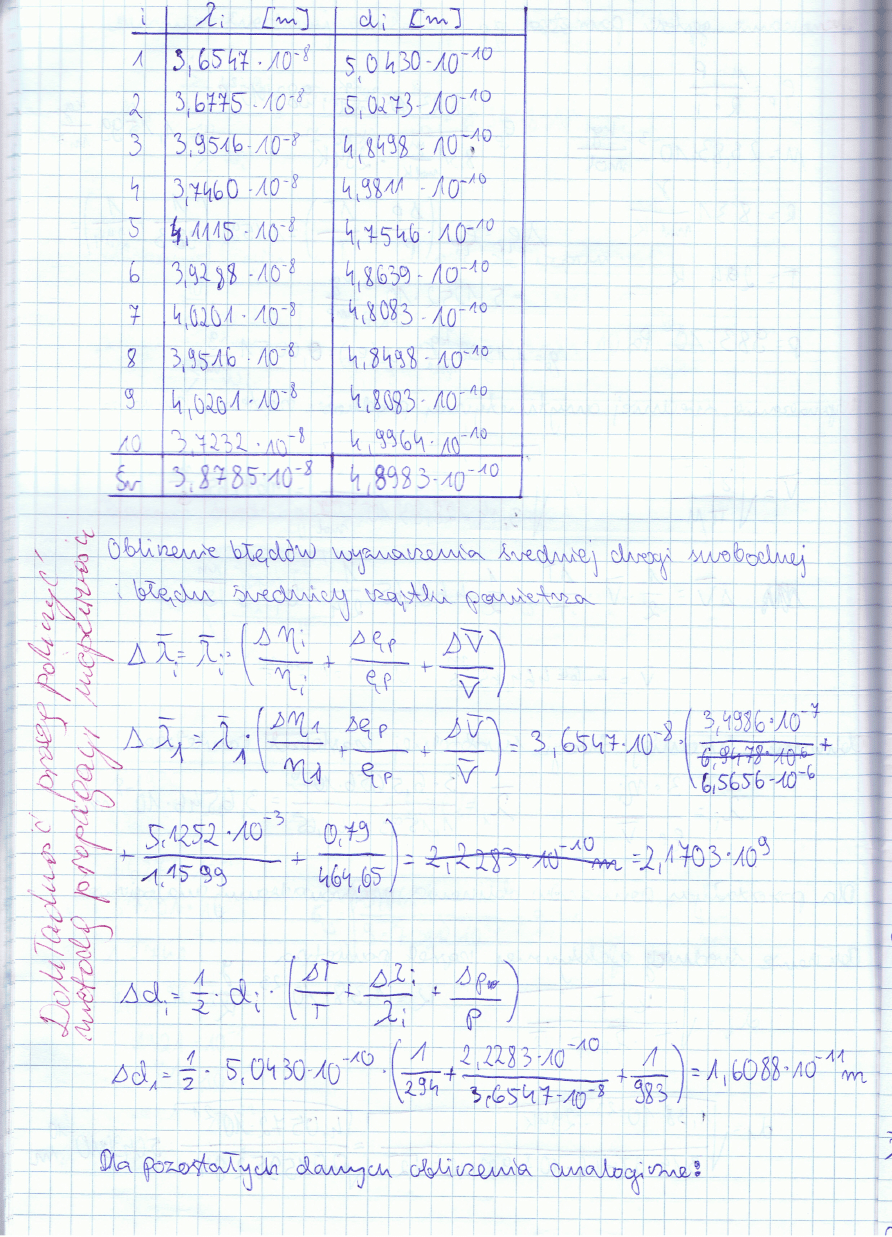 i λi [m] di [m]
1 3,6547·10⁻⁸ 5,0430·10⁻¹⁰
2 3,6775·10⁻⁸ 5,0273·10⁻¹⁰
3 3,9516·10⁻⁸ 4,8498·10⁻¹⁰
4 3,7460·10⁻⁸ 4,9811·10⁻¹⁰
5 4,1115·10⁻⁸ 4,7546·10⁻¹⁰
6 3,9288·10⁻⁸ 4,8639·10⁻¹⁰
7 4,0201·10⁻⁸ 4,8083·10⁻¹⁰
8 3,9516·10⁻⁸ 4,8498·10⁻¹⁰
9 4,0201·10⁻⁸ 4,8083·10⁻¹⁰
10 3,7232·10⁻⁸ 4,9964·10⁻¹⁰
Śr 3,8785·10⁻⁸ 4,8983·10⁻¹⁰
Obliczenie błędów wyznaczenia średniej drogi swobodnej
i błędu średnicy cząstki powietrza
Δλ̄i = λ̄i · (Δηi/ηi + Δϱp/ϱp + ΔV̄/V̄)
Δλ̄1 = λ̄1 · (Δη1/η1 + Δϱp/ϱp + ΔV̄/V̄) = 3,6547·10⁻⁸ · (3,4986·10⁻⁷/6,5656·10⁻⁶ +
+ 5,1252·10⁻³/1,1599 + 0,79/464,65) = 2,2283·10⁻¹⁰ m = 2,1703·10⁹
Δdi = 1/2 · di · (ΔT/T + Δλi/λi + Δp/p)
Δd1 = 1/2 · 5,0430·10⁻¹⁰ · (1/294 + 2,2283·10⁻¹⁰/3,6547·10⁻⁸ + 1/983) = 1,6088·10⁻¹¹ m
Dla pozostałych danych obliczenia analogiczne:
Dokładność przez policzyć
metodą propagacji niepewności